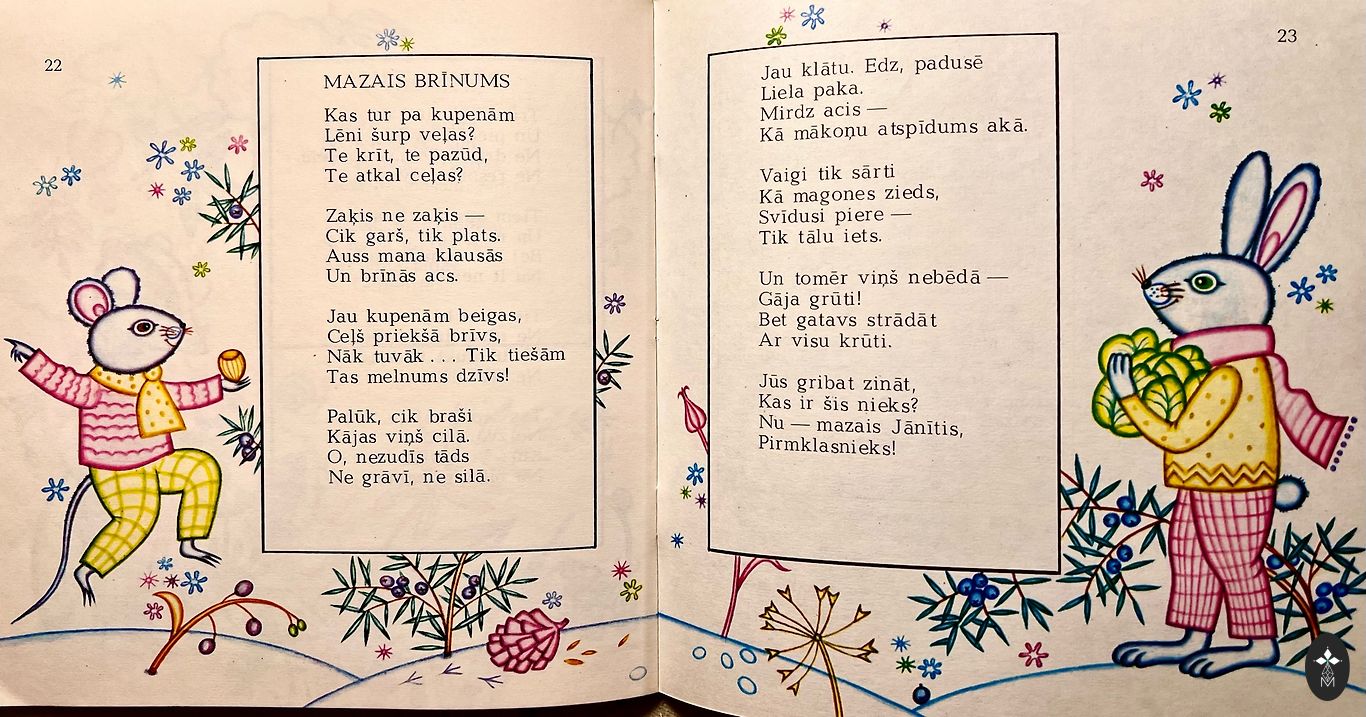 22
MAZAIS BRĪNUMS
Kas tur pa kupenām
Lēni šurp veļas?
Te krīt, te pazūd,
Te atkal ceļas?
Zaķis ne zaķis —
Cik garš, tik plats.
Auss mana klausās
Un brīnās acs.
Jau kupenām beigas,
Ceļš priekšā brīvs,
Nāk tuvāk . . . Tik tiešām
Tas melnums dzīvs!
Palūk, cik braši
Kājas viņš cilā.
O, nezudīs tāds
Ne grāvī, ne silā.
23
Jau klātu. Edz, padusē
Liela paka.
Mirdz acis —
Kā mākoņu atspīdums akā.
Vaigi tik sārti
Kā magones zieds,
Svīdusi piere —
Tik tālu iets.
Un tomēr viņš nebēdā —
Gāja grūti!
Bet gatavs strādāt
Ar visu krūti.
Jūs gribat zināt,
Kas ir šis nieks?
Nu — mazais Jānītis,
Pirmklasnieks!
M